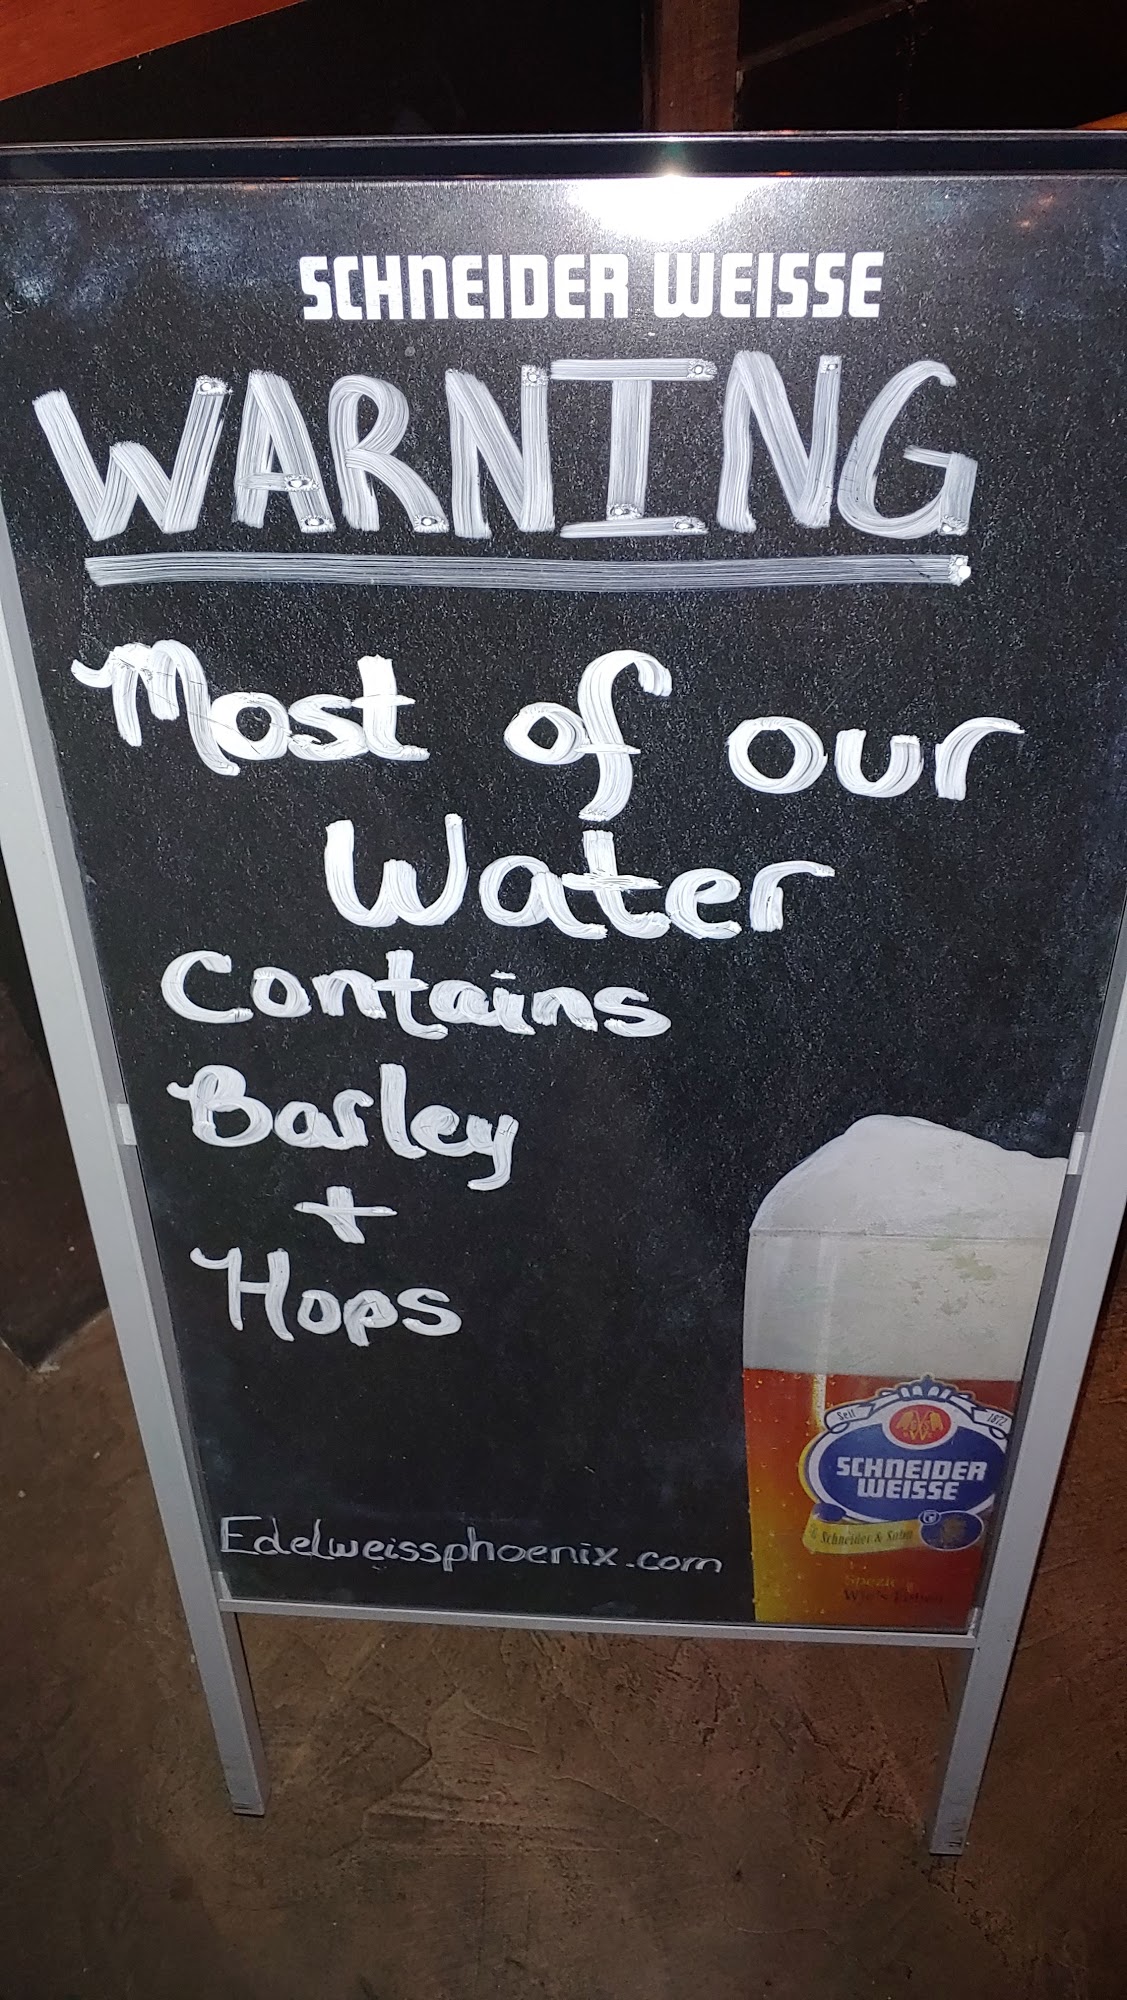 SCHNEIDER WEISSE
WARNING
Most of our
Water
Contains
Barley
+
Hops
Seit 1872
SCHNEIDER
WEISSE
G. Schneider & Sohn
Edelweissphoenix.com